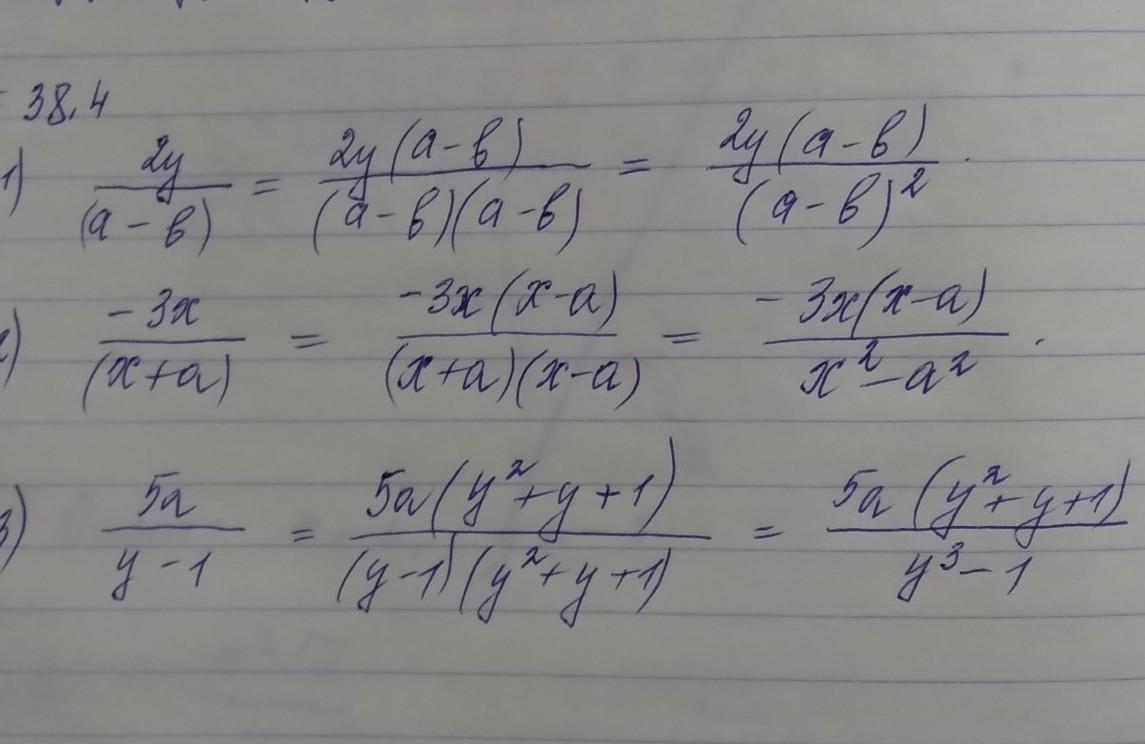 38.4
1) 2y/(a-b) = 2y(a-b)/(a-b)(a-b) = 2y(a-b)/(a-b)².
2) -3x/(x+a) = -3x(x-a)/(x+a)(x-a) = -3x(x-a)/x²-a².
3) 5a/y-1 = 5a(y²+y+1)/(y-1)(y²+y+1) = 5a(y²+y+1)/y³-1